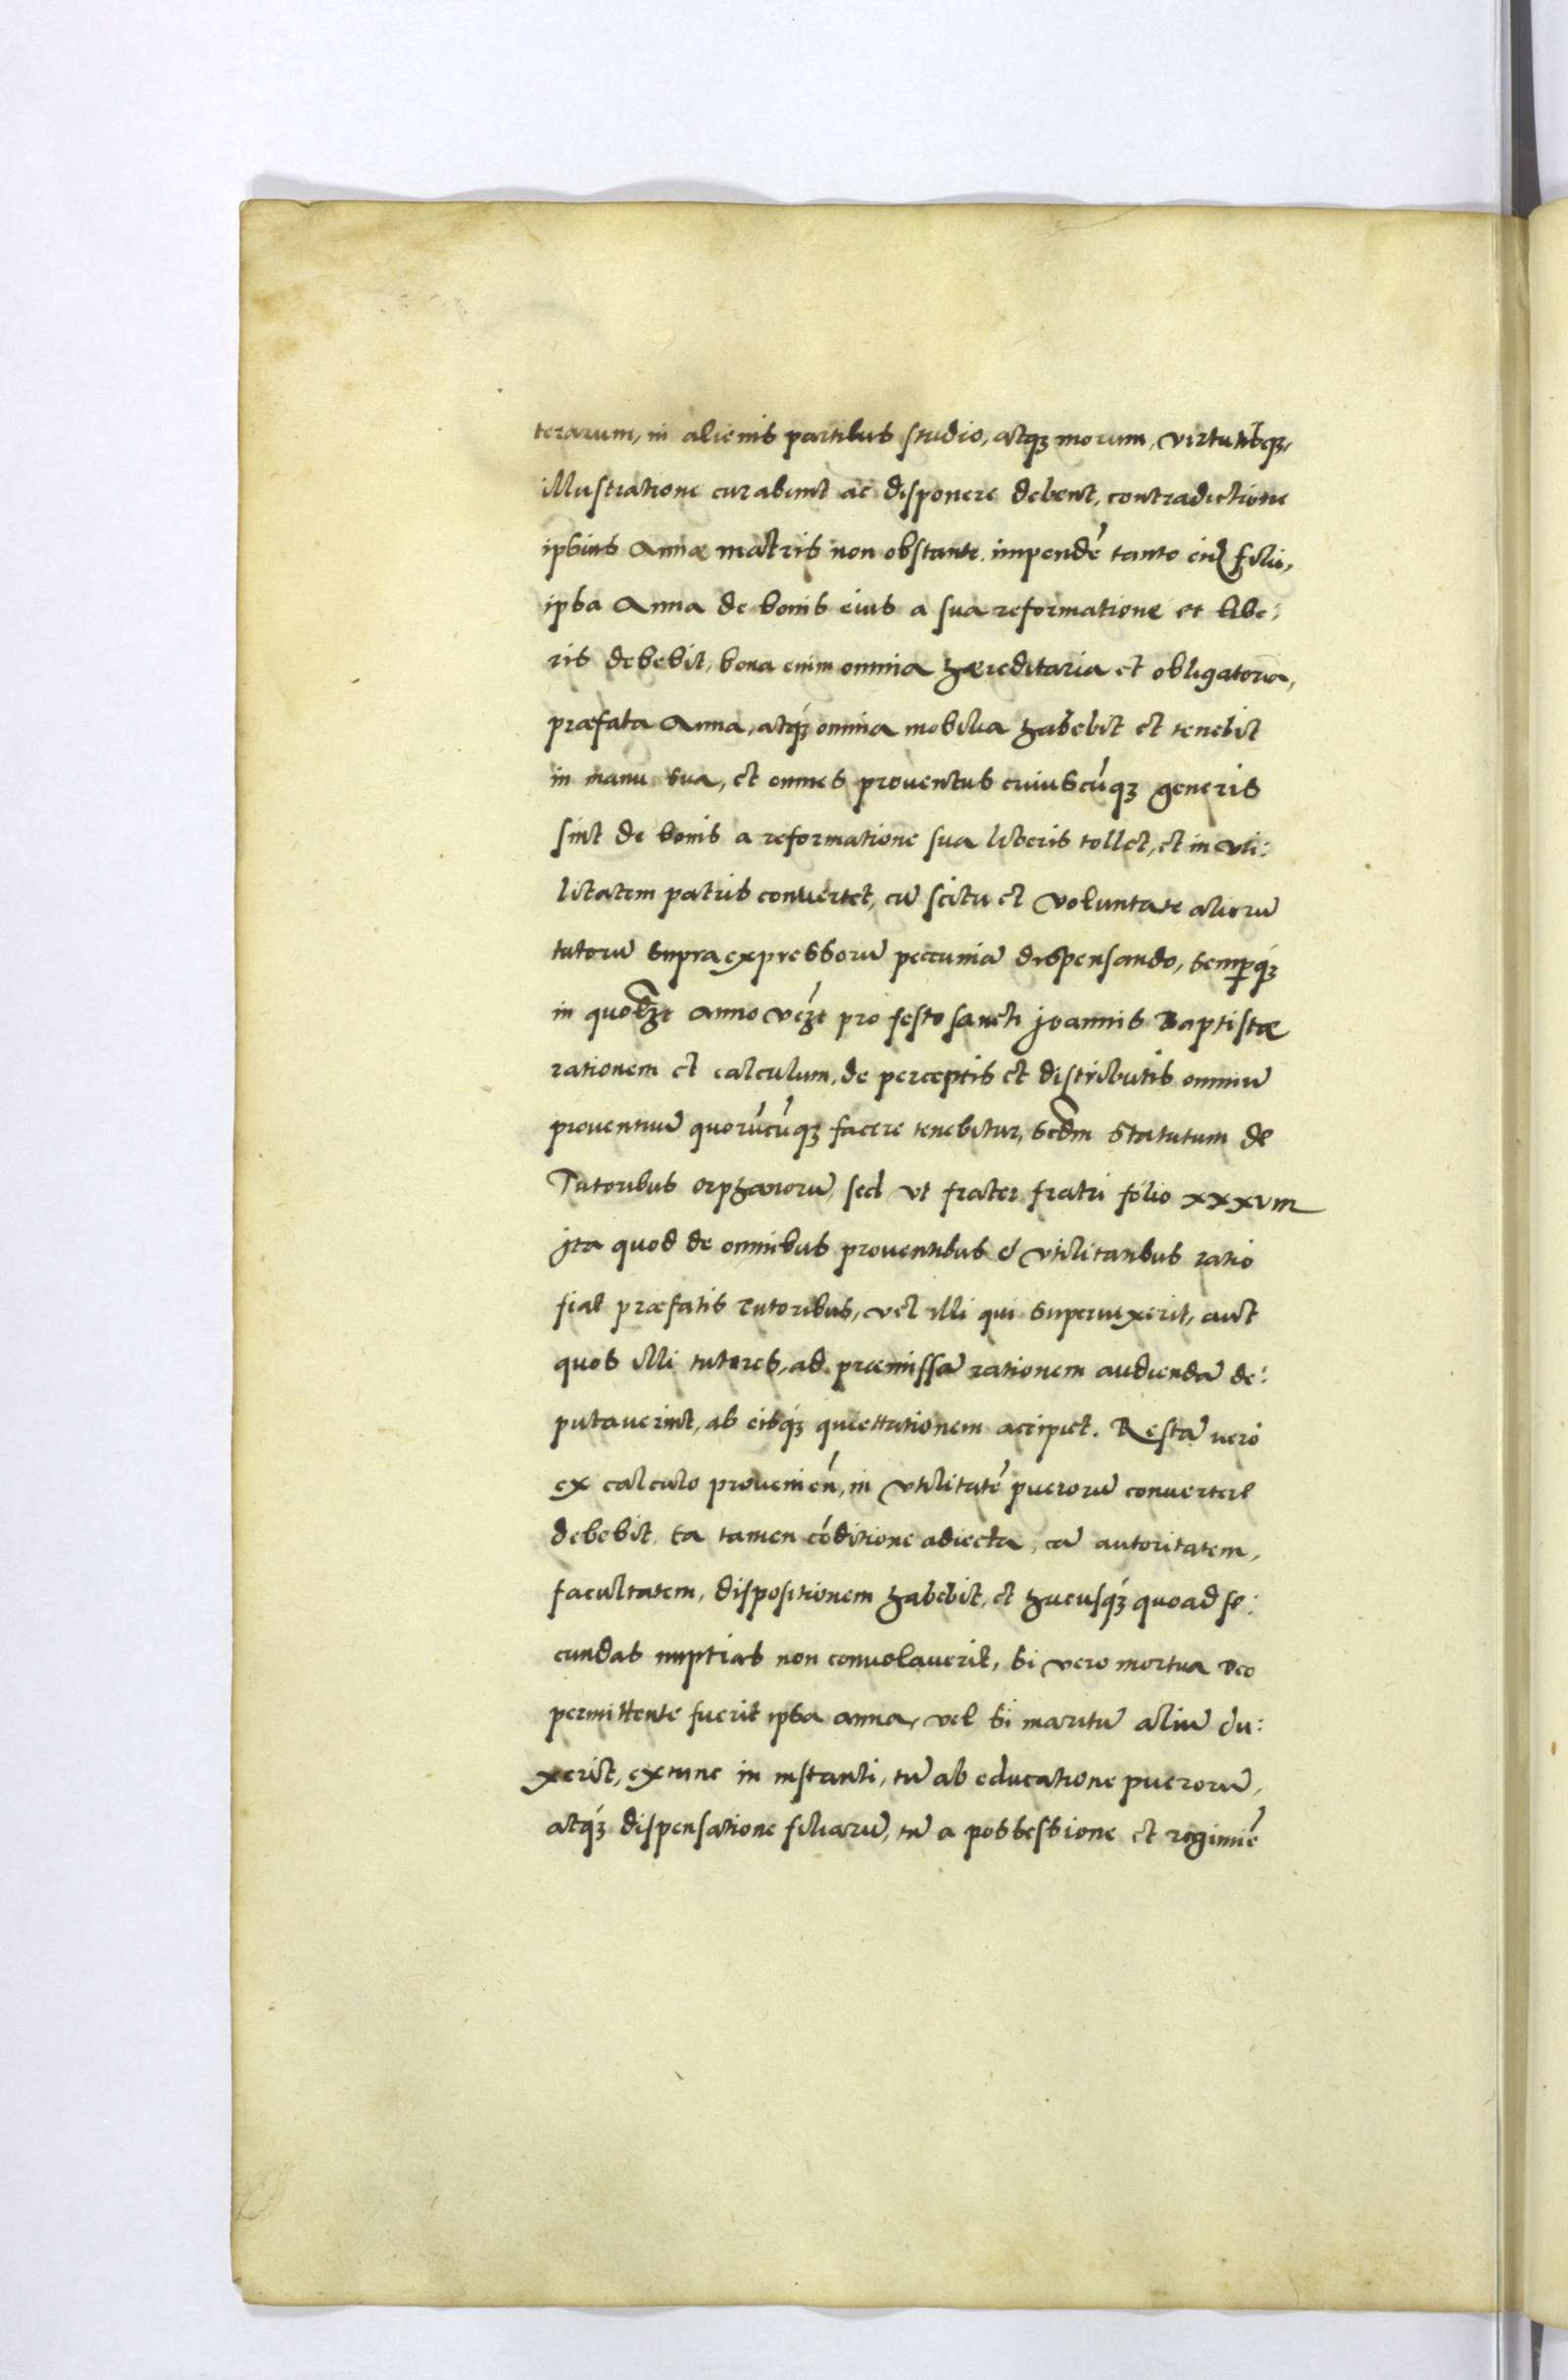 terarum, in alienis partibus studio, atq3 morum, virtutibq3,
illustratione curabunt ac disponere debent, contradictione
ipsius Annæ matris non obstante. impendē tanto eiusd filii,
ipsa Anna de bonis eius a sua reformatione et libe:
ris debebit, bona enim omnia hæreditaria et obligatoria,
præfata Anna, atq3 omnia mobilia habebit et tenebit
in manu sua, et omnes proventus cuiuscūq3 generis
sint de bonis a reformatione sua liberis tollet, et in vti:
litatem patris convertet, cū scitu et voluntate aliorū
tutorū supra expressorū peccuniā dispensando, semperq3
in quodlt anno vczt pro festo sancti joannis Baptistæ
rationem et calculum, de perceptis et distributis omniū
proventuū quorūcūq3 facere tenebitur, scdm Statutum de
Tutoribus orphanorū, sed vt frater fratri folio xxxvııı
jta quod de omnibus proventibus & vtilitatibus ratio
fiat præfatis Tutoribus, vel illi qui supervixerit, aut
quos illi tutores, ad præmissā rationem audiendā de:
putaverint, ab eisq3 quiettationem accipiet. Restā vero
ex calculo provenien̄, in vtilitatē puerorū convertere
debebit. ea tamen cōditione adiecta, eā autoritatem,
facultatem, dispositionem habebit, et hucusq3 quoad se:
cundas nuptias non convolaverit, si vero mortua deo
permittente fuerit ipsa anna, vel si maritū aliū du:
xerit, extunc in instanti, tū ab educatione puerorū,
atq3 dispensatione filiarū, tū a possessione et regiminē